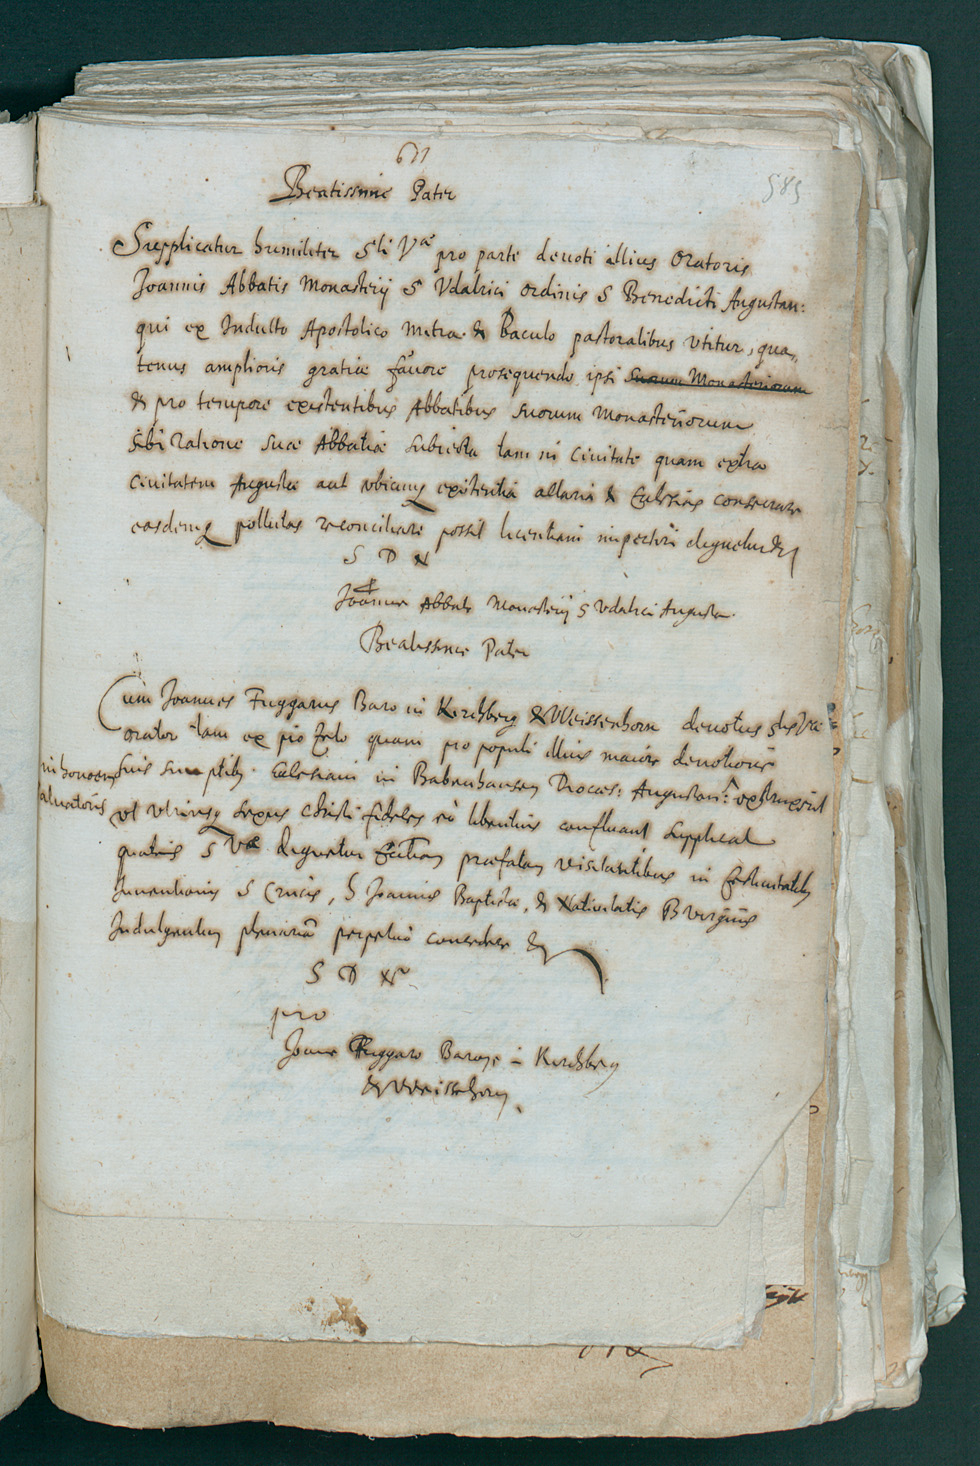 611
585
Beatissime Pater
Supplicatur humiliter Sti Væ pro parte devoti illius Oratoris
Joannis Abbatis Monasterij S Vdalrici ordinis S Benedicti Augustan:
qui ex Indulto Apostolico Mitra & Baculo pastoralibus vtitur, qua,,
tenus amplioris gratiæ favore prosequendo ipsi Suorum Monasteriorum
& pro tempore existentibus Abbatibus suorum Monasteriorum
sibi ratione suæ Abbatiæ subiecta tam in Civitate quam extra
civitatem Augustæ aut vbicunq existentia altaria & Ecclesias consecrare
easdemq pollutas reconciliare possit licentiam impertiri dignetur &
S D N
Joannes Abbas Monasterij S Vdalrici Augustæ.
Beatissime Pater
Cum Joannes Fuggarus Baro in Kirchberg & Weissenhorn devotus Stis Væ
orator tam ex pio Zelo quam pro populi illius maiori devotione
in honorem suis sumptibq Ecclesiam in Babenhausen Diocæs: Augustan: extruxerit
Salvatoris vt vtriusq sexus Christi fideles eò libentius confluant supplicat
quatenus S Væ dignetur Ecctiam præfatam visitantibus in festivitatibq
Inventionis S Crucis, S Joannis Baptistæ, & Nativitatis B Virginis
Indulgentiam plenariā perpetuò concedere &
S D Nr
pro
Joanne Fuggaro Barone in Kirchberg
& Weissenhorn.